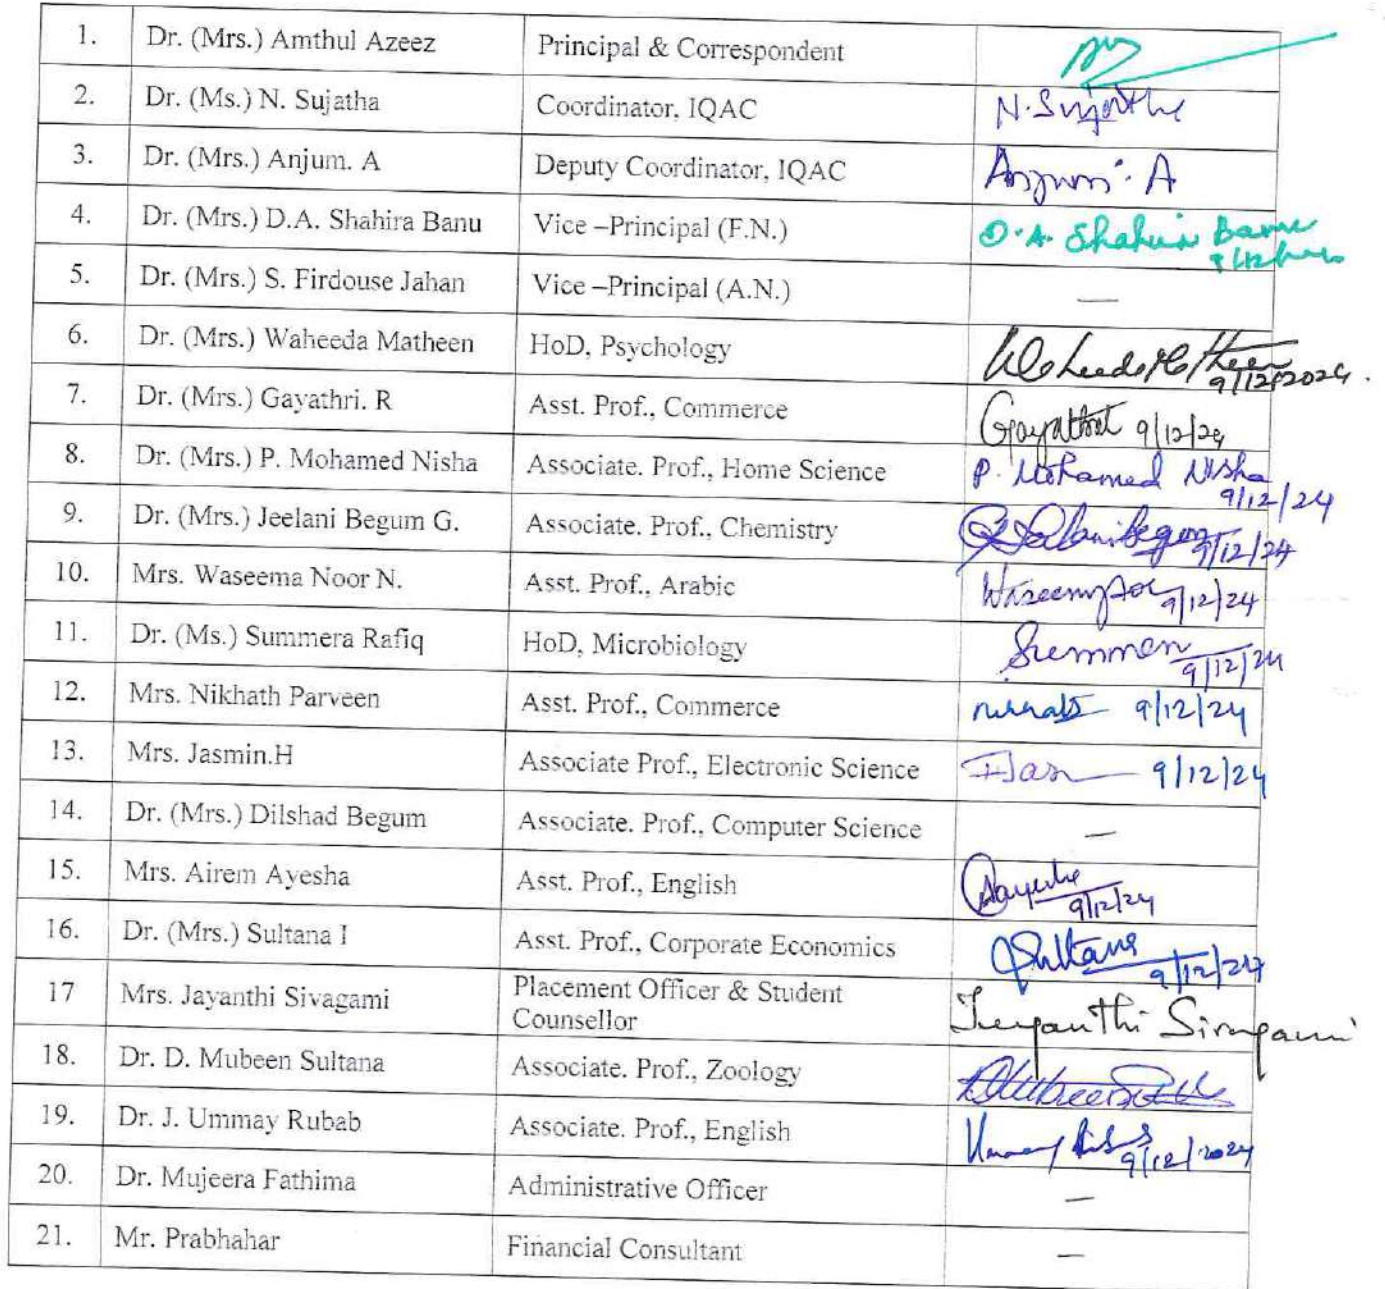 1. Dr. (Mrs.) Amthul Azeez Principal & Correspondent
2. Dr. (Ms.) N. Sujatha Coordinator, IQAC N. Sujatha
3. Dr. (Mrs.) Anjum. A Deputy Coordinator, IQAC Anjum. A
4. Dr. (Mrs.) D.A. Shahira Banu Vice –Principal (F.N.) D.A. Shahira Banu
5. Dr. (Mrs.) S. Firdouse Jahan Vice –Principal (A.N.) —
6. Dr. (Mrs.) Waheeda Matheen HoD, Psychology Waheeda Matheen
9/12/2024.
7. Dr. (Mrs.) Gayathri. R Asst. Prof., Commerce Gayathri 9/12/24
8. Dr. (Mrs.) P. Mohamed Nisha Associate. Prof., Home Science P. Mohamed Nisha
9/12/24
9. Dr. (Mrs.) Jeelani Begum G. Associate. Prof., Chemistry 9/12/24
10. Mrs. Waseema Noor N. Asst. Prof., Arabic 9/12/24
11. Dr. (Ms.) Summera Rafiq HoD, Microbiology 9/12/24
12. Mrs. Nikhath Parveen Asst. Prof., Commerce 9/12/24
13. Mrs. Jasmin.H Associate Prof., Electronic Science 9/12/24
14. Dr. (Mrs.) Dilshad Begum Associate. Prof., Computer Science —
15. Mrs. Airem Ayesha Asst. Prof., English Aayesha
9/12/24
16. Dr. (Mrs.) Sultana I Asst. Prof., Corporate Economics Sultana
9/12/24
17 Mrs. Jayanthi Sivagami Placement Officer & Student
Counsellor Jeyanthi Sivagami
18. Dr. D. Mubeen Sultana Associate. Prof., Zoology
19. Dr. J. Ummay Rubab Associate. Prof., English 9/12/2024
20. Dr. Mujeera Fathima Administrative Officer —
21. Mr. Prabhahar Financial Consultant —